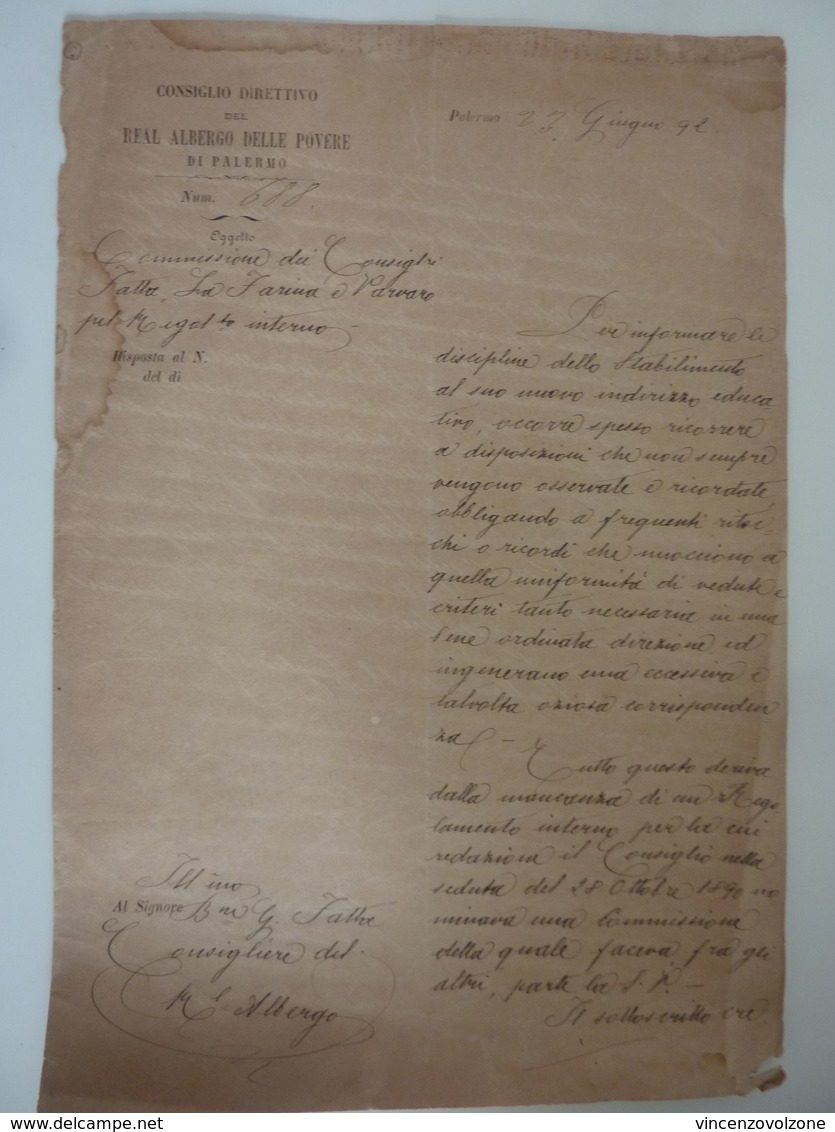 CONSIGLIO DIRETTIVO
DEL
REAL ALBERGO DELLE POVERE
DI PALERMO
Num. 688.
Oggetto
Commissione dei Consiglri
Fatta, La Farina e Varvaro
pel Regol.to interno
Risposta al N.
del di
Palermo 23 Giugno 92.
Per informare le
discipline dello Stabilimento
al suo nuovo indirizzo educa
tivo, occorre spesso ricorrere
a disposizioni che non sempre
vengono osservate e ricordate,
obbligando a frequenti ritoc-
chi o ricordi che nuocciono a
quella uniformità di vedute e
criteri tanto necessaria in una
bene ordinata direzione, ed
ingenerano una eccessiva e
talvolta oziosa corrisponden
za –
Tutto questo deriva
dalla mancanza di un Rego-
lamento interno per la cui
redazione il Consiglio nella
seduta del 28 Ottobre 1890 no
minava una Commissione
della quale faceva, fra gli
altri, parte la S. V. –
Il sottoscritto cre
Ill.mo
Al Signore Bne G. Fatta
Consigliere del
Rl Albergo
delcampe.net
vincenzovolzone